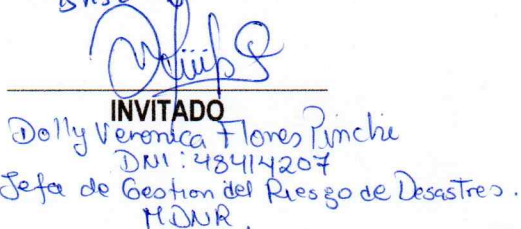 INVITADO
Dolly Veronica Flores Pinche
DNI: 48414207
Jefa de Gestion del Riesgo de Desastres.
MDNR.